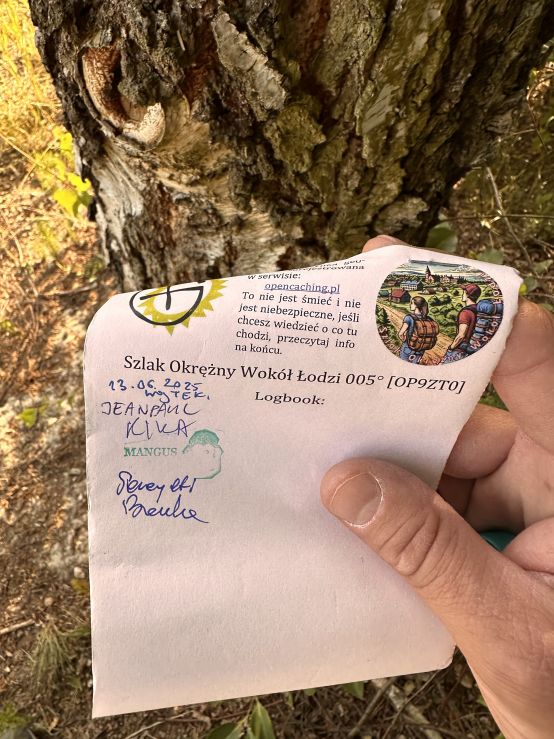 w serwisie:
opencaching.pl
To nie jest śmieć i nie
jest niebezpieczne, jeśli
chcesz wiedzieć o co tu
chodzi, przeczytaj info
na końcu.
Szlak Okrężny Wokół Łodzi 005° [OP9ZT0]
Logbook:
13.06.2025
WOJTEK.
JEANPAUL
KIKA
MANGUS